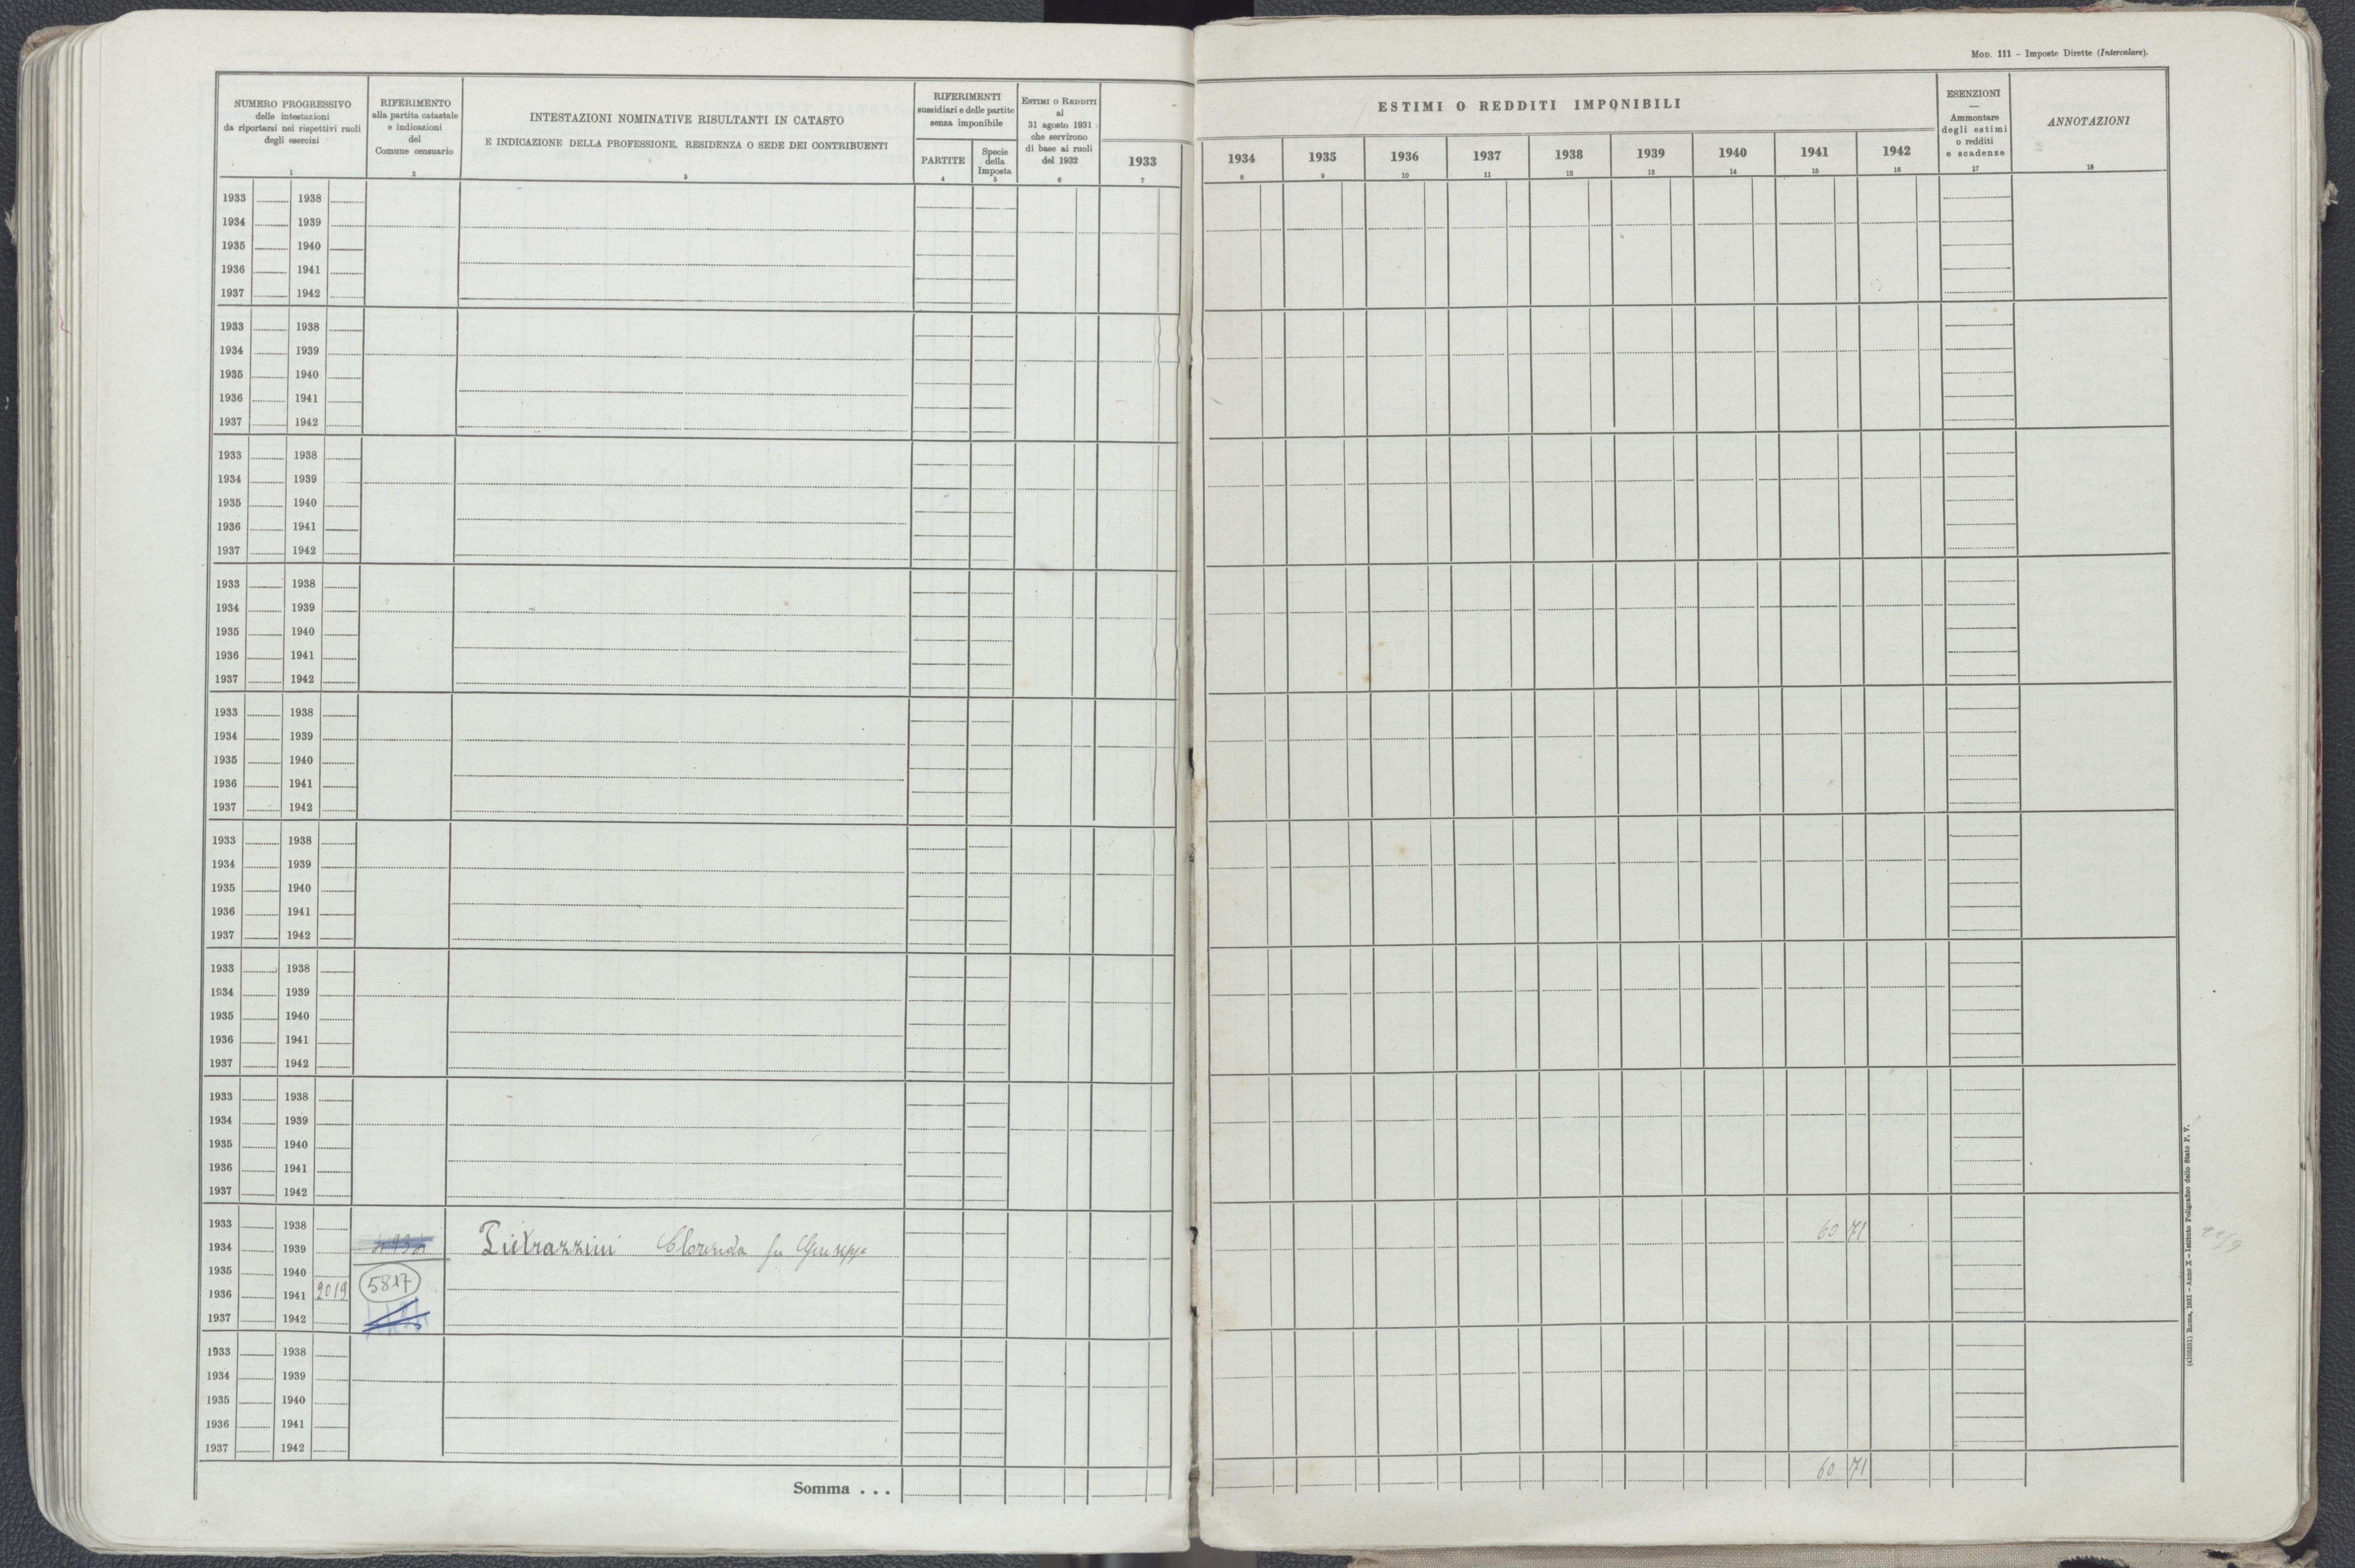 Mod. 111 – Imposte Dirette (Intercalare).
NUMERO PROGRESSIVO
delle intestazioni
da riportarsi nei rispettivi ruoli
degli esercizi
1
RIFERIMENTO
alla partita catastale
e indicazioni
del
Comune censuario
2
INTESTAZIONI NOMINATIVE RISULTANTI IN CATASTO
E INDICAZIONE DELLA PROFESSIONE, RESIDENZA O SEDE DEI CONTRIBUENTI
3
RIFERIMENTI
sussidiari e delle partite
senza imponibile
PARTITE
4
Specie
della
Imposta
5
Estimi o Redditi
al
31 agosto 1931
che servirono
di base ai ruoli
del 1932
6
1933
7
ESTIMI O REDDITI IMPONIBILI
1934 1935 1936 1937 1938 1939 1940 1941 1942
8 9 10 11 12 13 14 15 16
ESENZIONI
—
Ammontare
degli estimi
o redditi
e scadenze
17
ANNOTAZIONI
18
1933 1938
1934 1939
1935 1940
1936 1941
1937 1942
1933 1938
1934 1939
1935 1940
1936 1941
1937 1942
1933 1938
1934 1939
1935 1940
1936 1941
1937 1942
1933 1938
1934 1939
1935 1940
1936 1941
1937 1942
1933 1938
1934 1939
1935 1940
1936 1941
1937 1942
1933 1938
1934 1939
1935 1940
1936 1941
1937 1942
1933 1938
1934 1939
1935 1940
1936 1941
1937 1942
1933 1938
1934 1939
1935 1940
1936 1941
1937 1942
1933 1938
60 71
1934 1939 Pietrazzini Clorinda fu Giuseppe
1935 1940 5817
1936 1941 2019
1937 1942
1933 1938
1934 1939
1935 1940
1936 1941
1937 1942
Somma . . . 60 71
(4103531) Roma, 1931 – Anno X – Istituto Poligrafico dello Stato P. V.